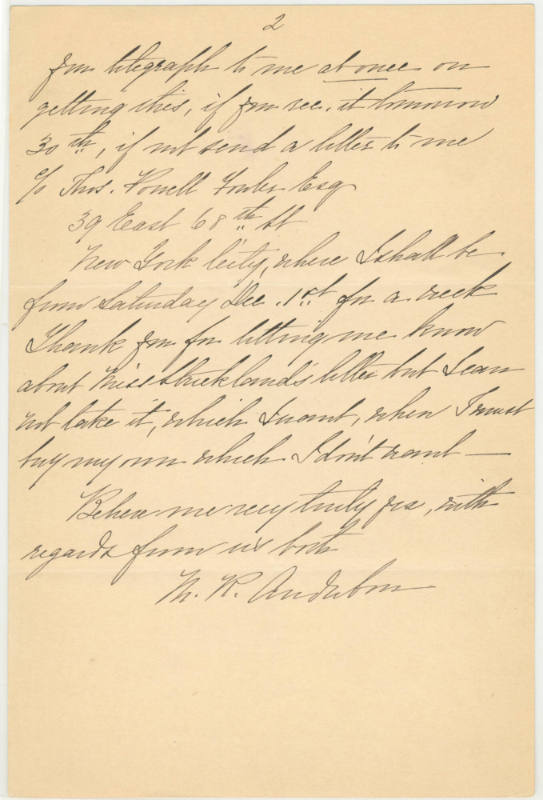 2
you telegraph to me at once on
getting this, if you rec. it tomorrow
30th, if not send a letter to me
c/o Thos. Powell Fowler Esq
39 East 68th St
New York City, where I shall be
from Saturday Dec. 1st for a week
Thank you for letting me know
about Miss Strickland's letter but I can
not take it, which I want, when I must
buy my own which I don't want —
Believe me very truly yrs, with
regards from us both
M. R. Audubon